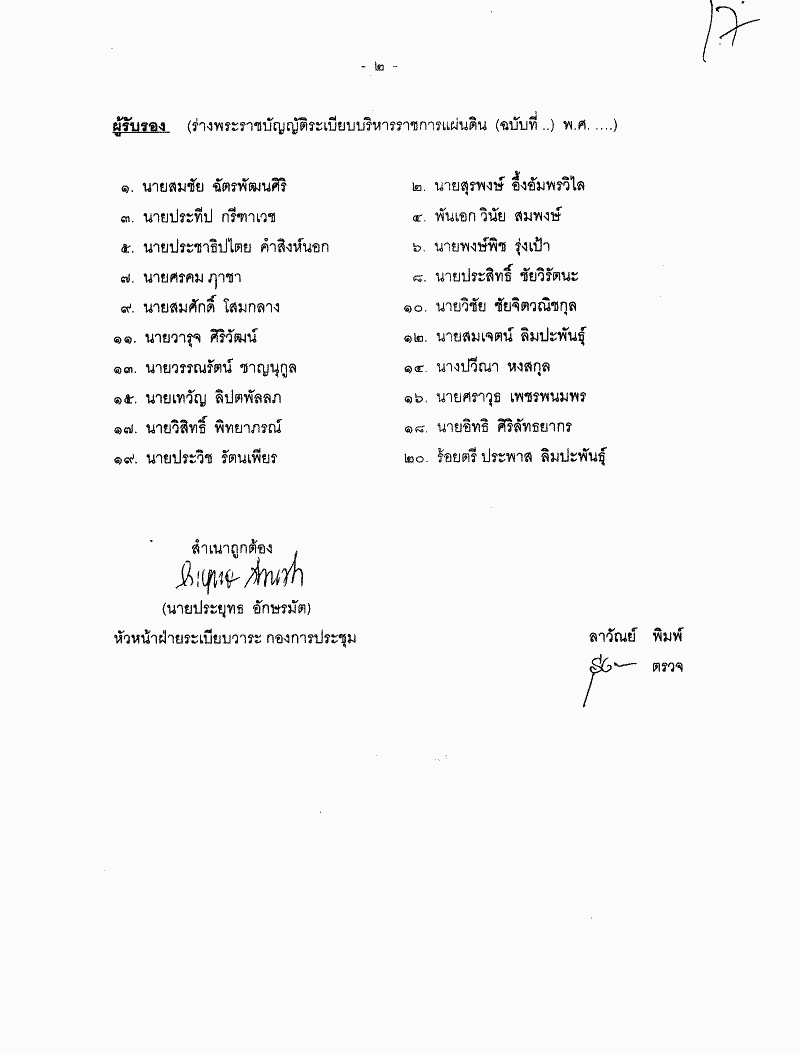 - ๒ -
ผู้รับรอง (ร่างพระราชบัญญัติระเบียบบริหารราชการแผ่นดิน (ฉบับที่ ..) พ.ศ. ....)
๑. นายสมชัย ฉัตรพัฒนศิริ ๒. นายสุรพงษ์ อึ้งอัมพรวิไล
๓. นายประทีป กรีฑาเวช ๔. พันเอก วินัย สมพงษ์
๕. นายประชาธิปไตย คำสิงห์นอก ๖. นายพงษ์พิช รุ่งเป้า
๗. นายศรคม ฦาชา ๘. นายประสิทธิ์ ชัยวิรัตนะ
๙. นายสมศักดิ์ โสมกลาง ๑๐. นายวิชัย ชัยจิตวณิชกุล
๑๑. นายวารุจ ศิริวัฒน์ ๑๒. นายสมเจตน์ ลิมปะพันธุ์
๑๓. นายวรรณรัตน์ ชาญนุกูล ๑๔. นางปวีณา หงสกุล
๑๕. นายเทวัญ ลิปตพัลลภ ๑๖. นายศราวุธ เพชรพนมพร
๑๗. นายวิสิทธิ์ พิทยาภรณ์ ๑๘. นายอิทธิ ศิริลัทธยากร
๑๙. นายประวิช รัตนเพียร ๒๐. ร้อยตรี ประพาส ลิมปะพันธุ์
สำเนาถูกต้อง
(นายประยุทธ อักษรมัต)
หัวหน้าฝ่ายระเบียบวาระ กองการประชุม
ลาวัณย์ พิมพ์
ตรวจ